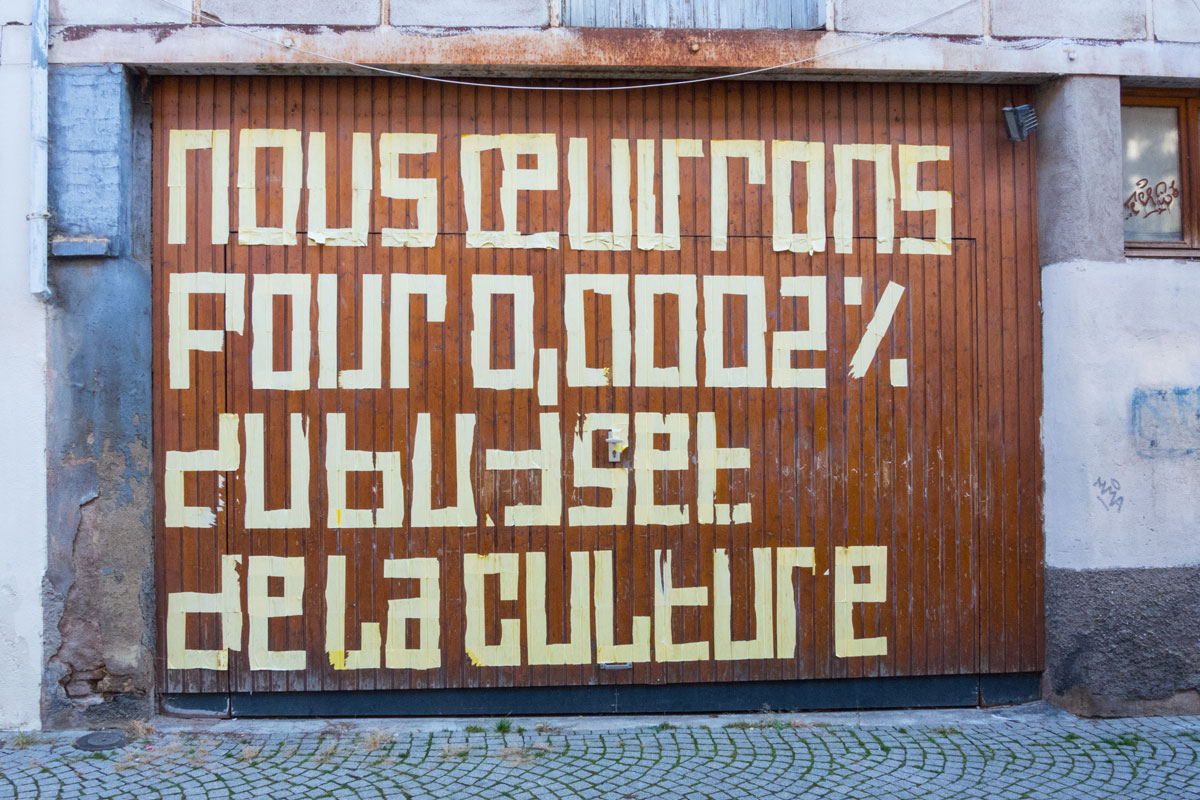 nous œuvrons
Pour 0,0002%
du budget
de la culture